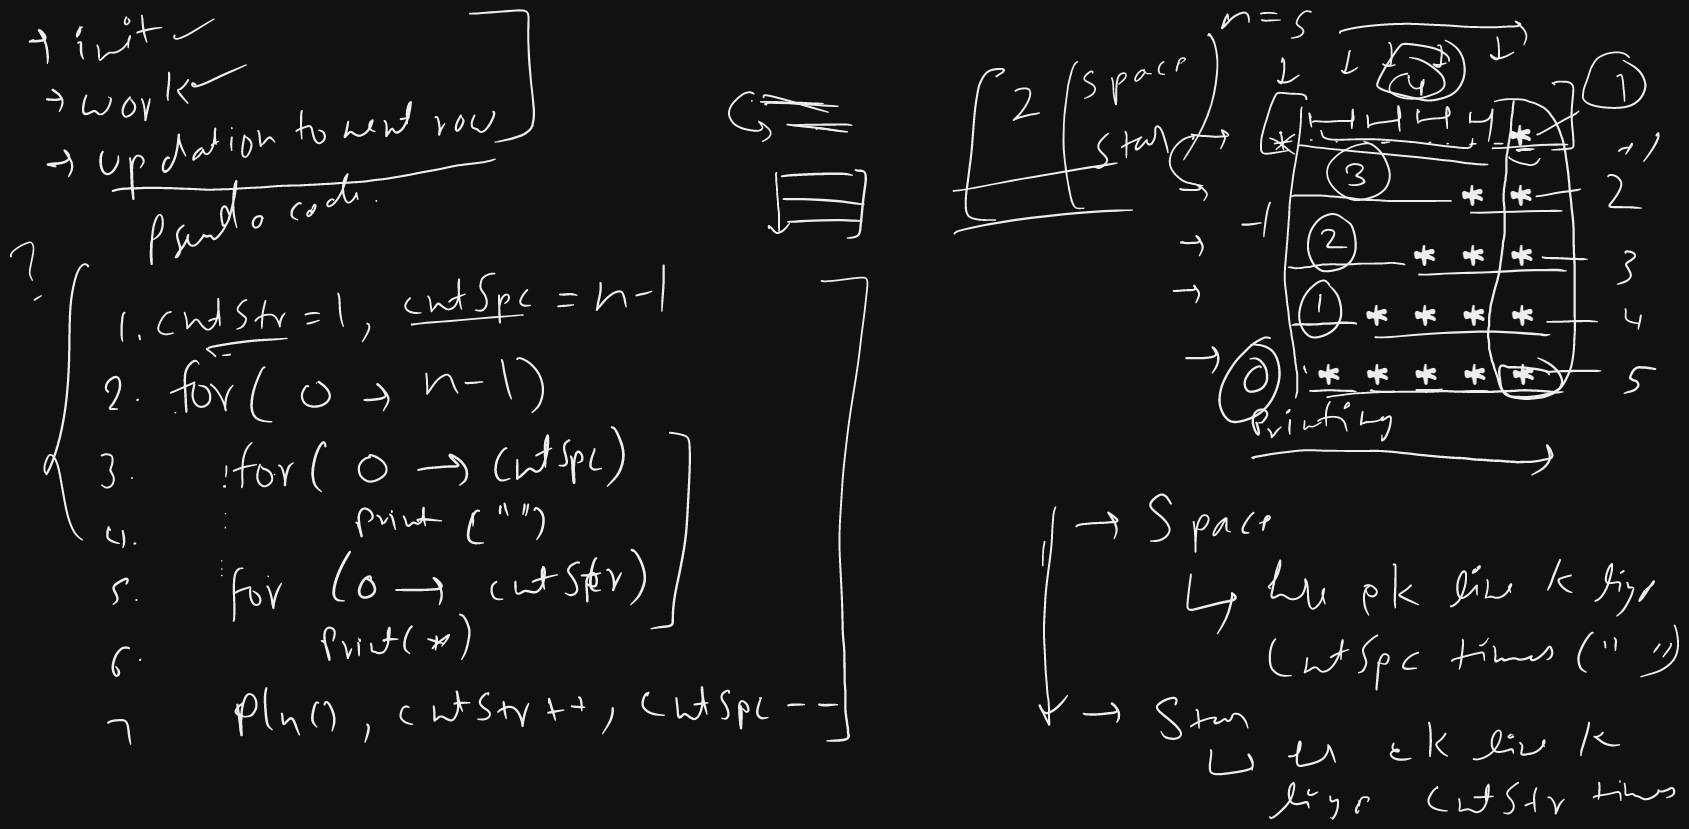 → init ✓
→ work ✓
→ updation to next row
Pseudo code.
?
1. cntStr = 1, cntSpc = n-1
2. for( 0 → n-1)
3. for( 0 → cntSpc)
4. print (" ")
5. for (0 → cntStr)
6. Print(*)
7 Pln(), cntStr++, cntSpc--
2
space
star
n = 5
4
1
* *
+1
3
* * 2
-1
2
* * * 3
1
* * * * 4
0
* * * * * 5
Printing
→ Space
↳ line k liye
cntSpc times (" ")
→ Star
↳ ek line k
liye cntStr times